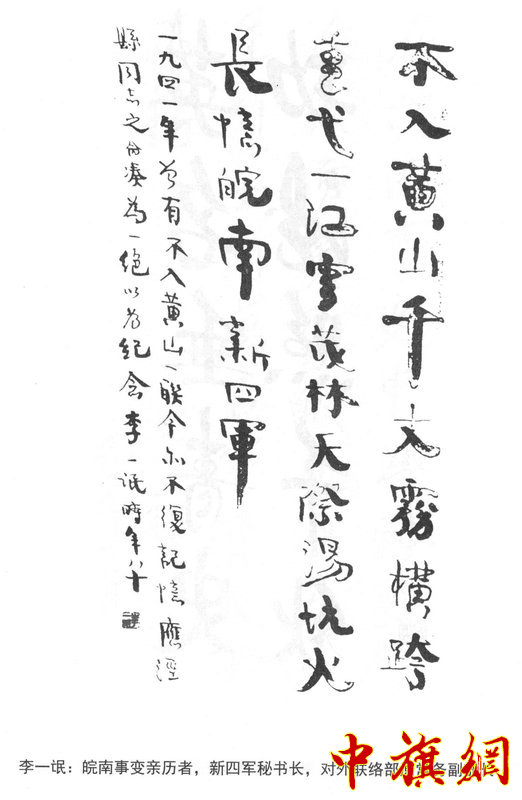 不入黄山千丈霧橫跨
蕙弋一江雪茂林天際湯坑火
長憶皖南新四軍
一九四一年曾有不入黄山一聯今亦不復記憶應涇
縣同志之湊為一絕以為紀念李一氓時年八十
李一氓：皖南事变亲历者，新四军秘书长，对外联络部常务副
中旗網